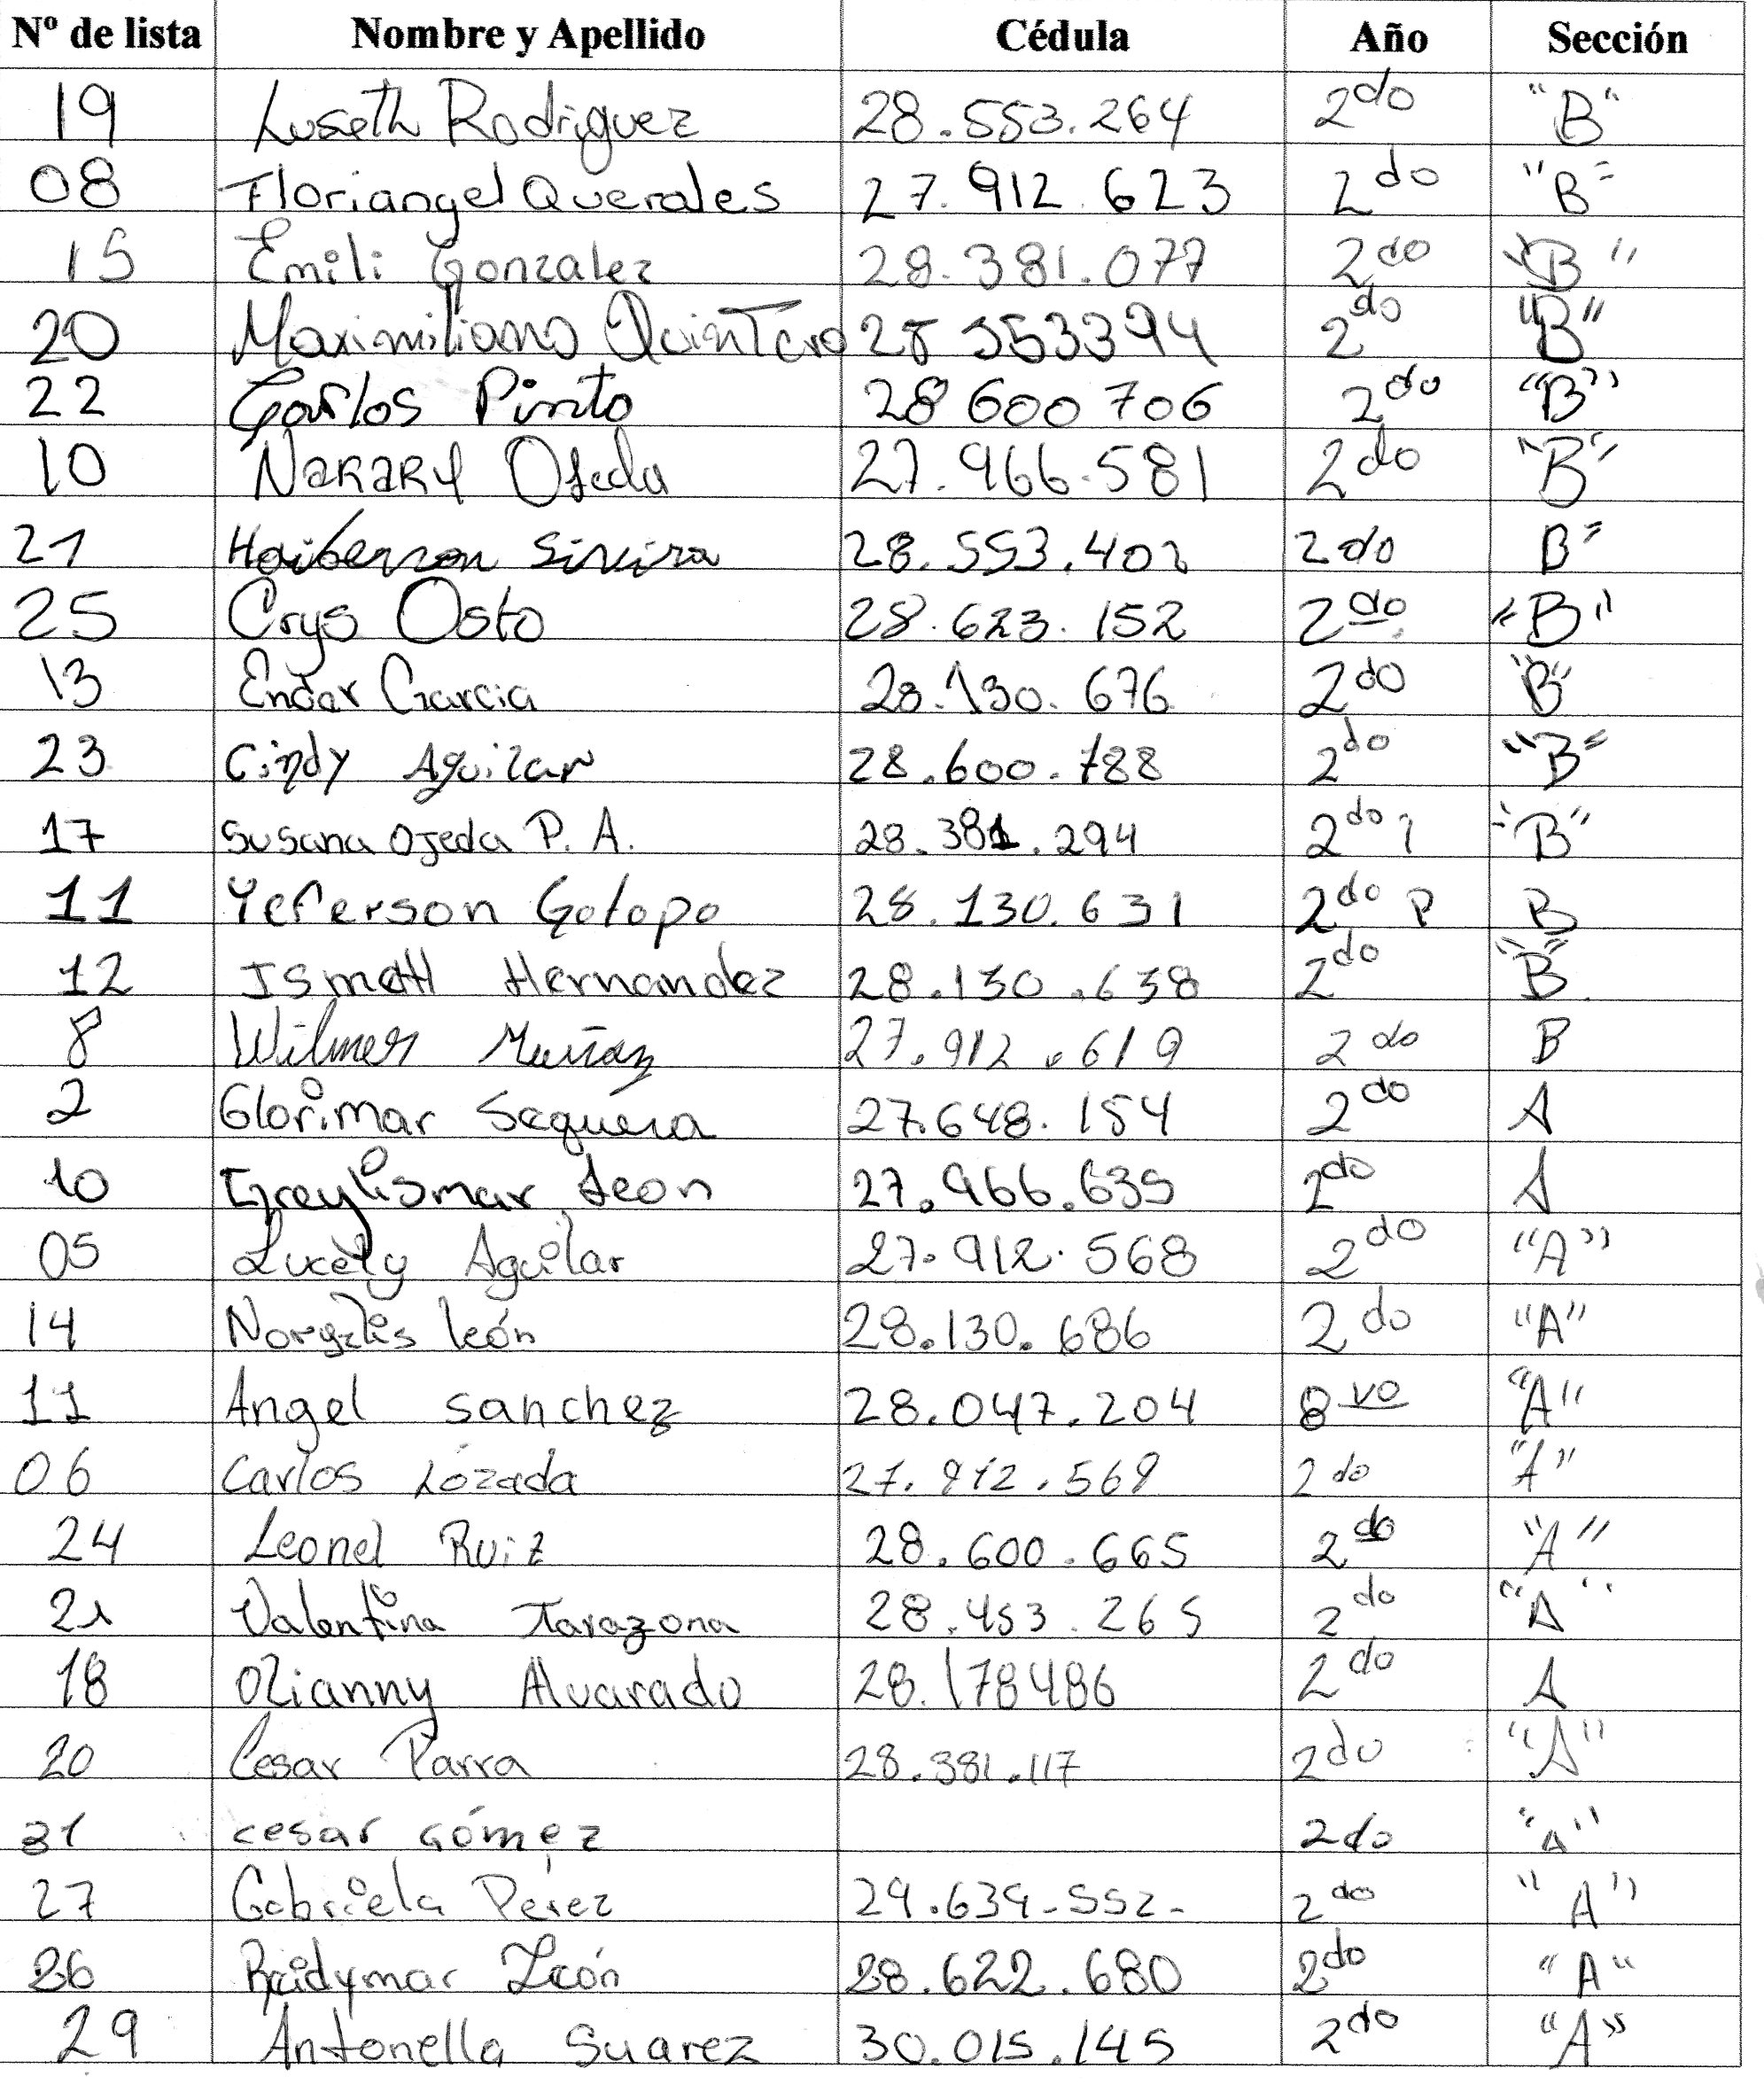 Nº de lista Nombre y Apellido Cédula Año Sección
19 Luseth Rodriguez 28.553.264 2do "B"
08 Floriangel Querales 27.912.623 2do "B"
15 Emili Gonzalez 28.381.077 2do "B"
20 Maximiliano Quintero 28 553394 2do "B"
22 Carlos Pinto 28 600 706 2do "B"
10 Narary Ojeda 27.966.581 2do "B"
21 Haiberson Sivira 28.553.402 2do B"
25 Crys Osto 28.623.152 2do "B"
13 Ender Garcia 28.130.676 2do "B"
23 Cindy Aguilar 28.600.788 2do "B"
17 Susana Ojeda P. A. 28.381.294 2do "B"
11 Yeferson Gotopo 28.130.631 2do P B
12 Ismath Hernandez 28.130.638 2do "B"
8 Wilmer Muñoz 27.912.619 2do B
2 Glorimar Sequera 27.648.154 2do A
10 Greylismar Leon 27.966.635 2do A
05 Lucely Aguilar 27.912.568 2do "A"
14 león 28.130.686 2do "A"
11 Angel Sanchez 28.047.204 8vo "A"
06 Carlos Lozada 27.912.569 2do "A"
24 Leonel Ruiz 28.600.665 2do "A"
21 Valentina Tarazona 28.453.265 2do "A"
18 Olianny Alvarado 28.178486 2do A
20 Cesar Parra 28.381.117 2do "A"
31 cesar Gómez 2do "A"
27 Gabriela Pérez 29.639-552- 2do "A"
26 Reidymar León 28.622.680 2do "A"
29 Antonella Suarez 30.015.145 2do "A"